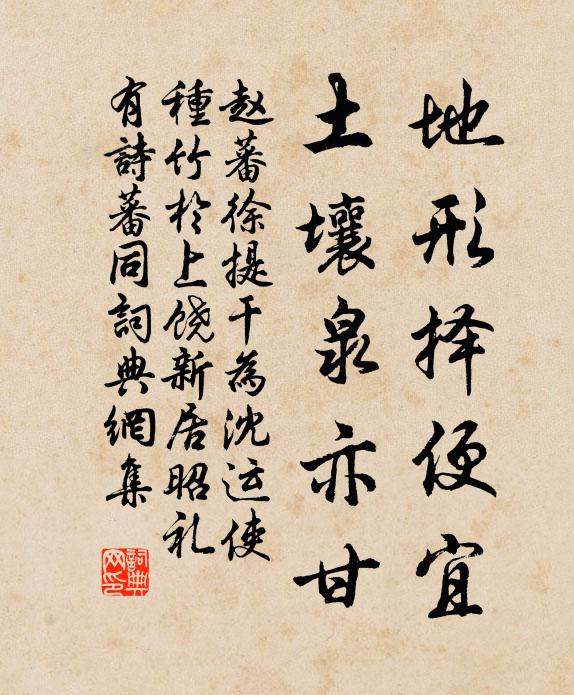 地形择便宜
土壤泉亦甘
赵蕃徐提干為沈运使
種竹於上饶新居昭礼
有詩蕃同詞典網集
詞典网印